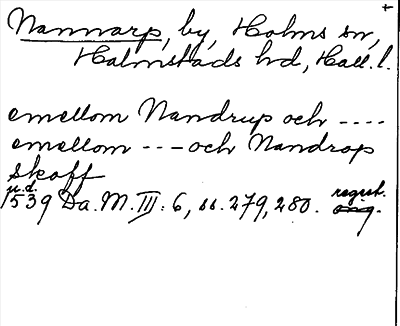 +
Nannarp, by, Holms sn,
Halmstads hd, Hall. l.
emellom Nandrup och ----
emellom --- och Nandrop
skoff
u.d.
1539 Da. M. III: 6, ss. 279, 280. regist.
orig.